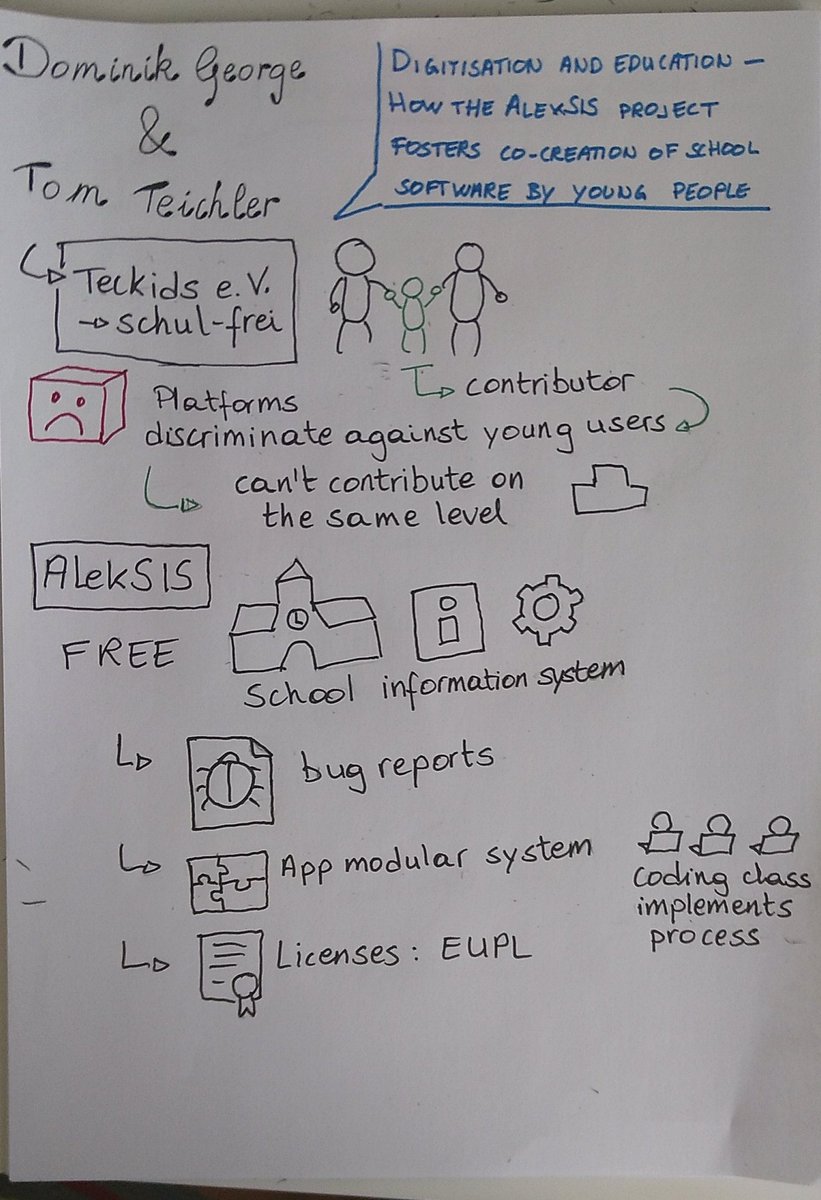 Dominik George
&
Tom Teichler
DIGITISATION AND EDUCATION –
HOW THE ALEKSIS PROJECT
FOSTERS CO-CREATION OF SCHOOL
SOFTWARE BY YOUNG PEOPLE
Teckids e.V.
→ schul-frei
contributor
Platforms
discriminate against young users
can't contribute on
the same level
AlekSIS
FREE
School information system
bug reports
App modular system
coding class
implements
process
Licenses: EUPL